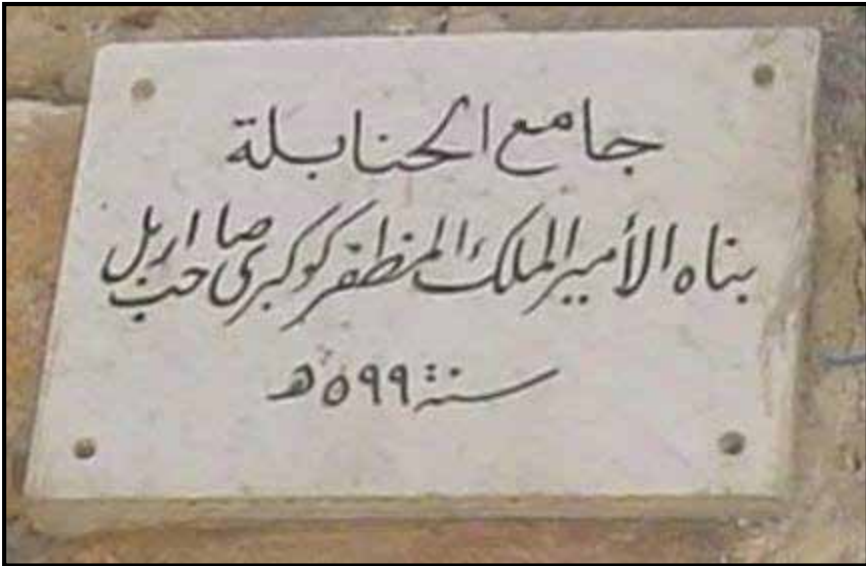 جامع الحنابلة
بناه الأمير الملك المظفر كوكبرى صاحب اربل
سنة ٥٩٩هـ